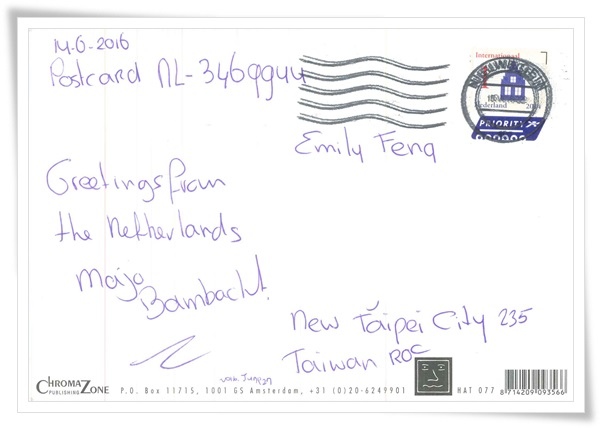 14-6-2016
Postcard NL-3469944
Emily Feng
Greetings from
the Netherlands
Majo
Bambacht!
New Taipei City 235
Taiwan ROC
Internationaal
1
Nederland 2014
PRIORITY
CHROMAZONE
PUBLISHING
P.O. Box 11715, 1001 GS Amsterdam, +31 (0)20-6249901
HAT 077
8 714209 093566